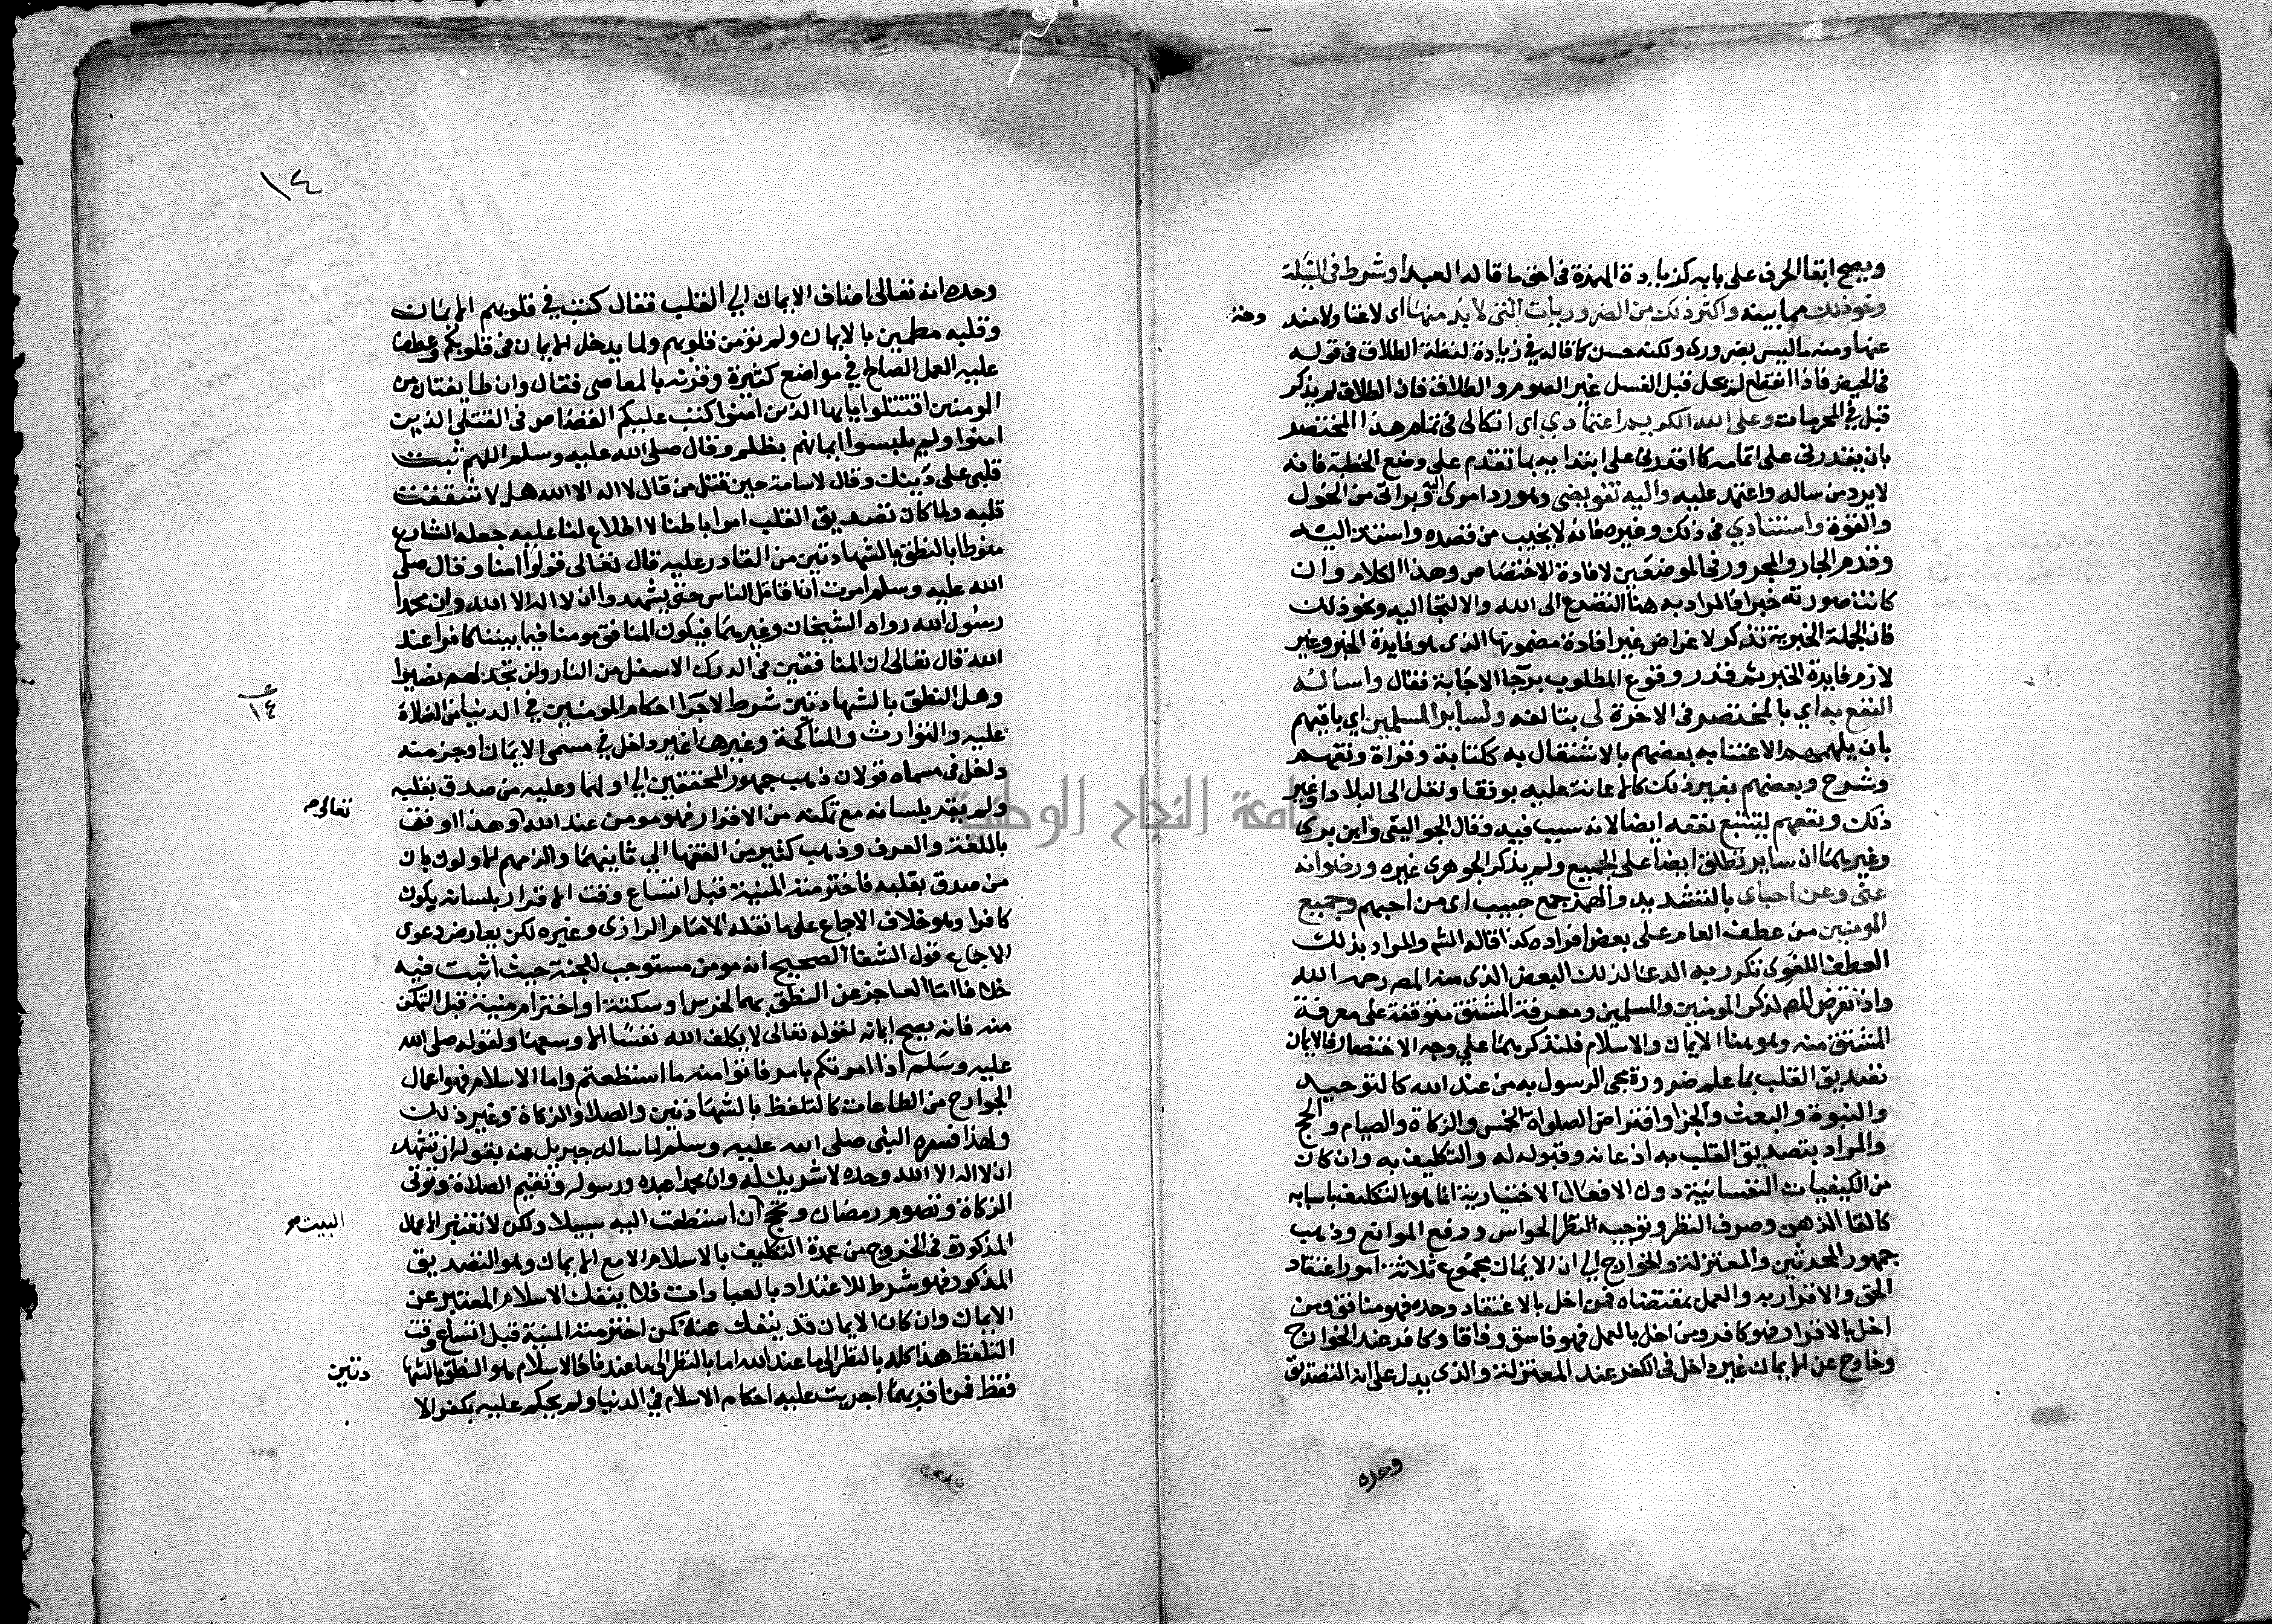 ويصح ابقا الحرف على بابه كزيادة الهمزة في احق ما قاله العبد او شرط في القبلة
ونحو ذلك مما بينته واكثر ذلك من الضروريات التي لابد منها اى لا غنا ولا مند وحة
عنها ومنه ما ليس بضرورى ولكنه حسن كما قاله في زيادة لفظة الطلاق في قوله
في الحيض فاذا انقطع لم يحل قبل الغسل غير الصوم والطلاق فان الطلاق لم يذكر
قبل في المحرمات وعلى الله الكريم اعتمادي اى اتكالى في تمام هذا المختصر
بان يقدرني على اتمامه كما اقدرني على ابتدايه بما تقدم على وضع الخطبة فانه
لا يرد من ساله واعتمد عليه واليه تفويضى ورد امورى براتى من الحول
والقوة واستنادي في ذلك وغيره فانه لا يخيب من قصده واستند اليه
وقدم الجار والمجرور في الموضعين لافادة الاختصاص وهذا الكلام وان
كانت صورته خبرا فالمراد به هنا التضرع الى الله والالتجا اليه ونحو ذلك
فان الجملة الخبرية تذكر لاغراض غير افادة مضمونها الذى هو فايدة الخبر وغير
لازم فايدة الخبر ثم قدر وقوع المطلوب برجا الاجابة فقال واساله
النفع به اي بالمختصر في الاخرة لى بتاليفه ولساير المسلمين اي باقيهم
بان يلهمهم الاعتنا به بعضهم بالاشتغال به ككتابة وقراة وتفهم
وشرح وبعضهم بغير ذلك كالاعانة عليه بوقف او نقل الى البلاد او غير
ذلك ونفعهم يتتبع نفعه ايضا لانه سبب فيه وقال الجواليقى وابن برى
وغيرهما ان ساير تطلق ايضا على الجميع ولم يذكر الجوهرى غيره ورضوانه
عنى وعن احباى بالتشديد والهمز جمع حبيب اى من احبهم وجميع
المومنين من عطف العام على بعض افراده كذا قاله الشم والمراد بذلك
العطف اللغوى تكرر به الدعا لذلك البعض الذى منه المص رحمه الله
واذا تعرض المص لذكر المومنين والمسلمين ومعرفة المشتق متوقفة على معرفة
المشتق منه وهو هنا الايمان والاسلام فلنذكرهما علي وجه الاختصار فالايمان
تصديق القلب بما علم ضرورة مجى الرسول به من عند الله كالتوحيد
والنبوة والبعث والجزا وافتراض الصلواة الخمس والزكاة والصيام والحج
والمراد بتصديق القلب به اذعانه وقبوله له والتكليف به وان كان
من الكيفيات النفسانية دون الافعال الاختيارية انما هو بالتكليف باسبابه
كالقا الذهن وصرف النظر وتوجيه النظر الحواس ورفع الموانع وذهب
جمهور المحدثين والمعتزلة والخوارج الي ان الايمان مجموع ثلاثة امور اعتقاد
الحق والاقرار به والعمل بمقتضاه فمن اخل بالاعتقاد وحده فهو منافق ومن
اخل بالاقرار فهو كافر ومن اخل بالعمل فهو فاسق وفاقا وكافر عند الخوارج
وخارج عن الايمان غير داخل في الكفر عند المعتزلة والذى يدل على انه التصديق
وحده
١٤
وحده انه تعالى اضاف الايمان الي القلب فقال كتب في قلوبهم الايمان
وقلبه مطمين بالايمان ولم تؤمن قلوبهم ولما يدخل الايمان في قلوبكم وعطف
عليه العمل الصالح في مواضع كثيرة وقرنه بالمعاصى فقال وان طايفتان من
المومنين اقتتلوا يايها الذين امنوا كتب عليكم القصاص في القتلى الذين
امنوا ولم يلبسوا ايمانهم بظلم وقال صلى الله عليه وسلم اللهم ثبت
قلبى على دينك وقال لاسامة حين قتل من قال لا اله الا الله هل لا شققت
قلبه ولما كان تصديق القلب امرا باطنا لا اطلاع لنا عليه جعله الشارع
منوطا بالنطق بالشهادتين من القادر عليه قال تعالى قولوا امنا وقال صلى
الله عليه وسلم امرت ان اقاتل الناس حتى يشهدوا ان لا اله الا الله وان محمدا
رسول الله رواه الشيخان وغيرهما فيكون المنافق مومنا فيما بيننا كافرا عند
الله قال تعالى ان المنافقين في الدرك الاسفل من النار ولن تجد لهم نصيرا
وهل النطق بالشهادتين شرط لاجرا احكام المومنين في الدنيا من الصلاة
١٤
عليه والتوارث والمناكحة وغيرها غير داخل في مسمى الايمان او جز منه
داخل في مسماه قولان ذهب جمهور المحققين الي اولهما وعليه من صدق بقلبه
ولم يقر بلسانه مع تمكنه من الاقرار فهو مومن عند الله وهذا اوفق تعالى م
باللغة والعرف وذهب كثير من الفقها الي ثانيهما والزمهم الاولون بان
من صدق بقلبه فاخترمته المنية قبل اتساع وقت الاقرار بلسانه يكون
كافرا وهو خلاف الاجماع على ما نقله الامام الرازى وغيره لكن يعارض دعوى
الاجماع قول الشفا الصحيح انه مومن مستوجب للجنة حيث اثبت فيه
خلافا اما العاجز عن النطق بهما لخرس او سكتة او اخترام منية قبل التمكن
منه فانه يصح ايمانه لقوله تعالى لا يكلف الله نفسا الا وسعها ولقوله صلى الله
عليه وسلم اذا امرتكم بامر فاتوا منه ما استطعتم واما الاسلام فهو اعمال
الجوارح من الطاعات كالتلفظ بالشهادتين والصلاة والزكاة وغير ذلك
ولهذا فسره النبى صلى الله عليه وسلم لما ساله جبريل عنه بقوله ان تشهد
ان لا اله الا الله وحده لا شريك له وان محمدا عبده ورسوله وتقيم الصلاة وتوتى
الزكاة وتصوم رمضان وتحج ان استطعت اليه سبيلا ولكن لا تعتبر الاعمال البيت
المذكورة في الخروج من عهدة التكليف بالاسلام الا مع الايمان وهو التصديق
المذكور فهو شرط للاعتداد بالعبادات فلا ينفك الاسلام المعتبر عن
الايمان وان كان الايمان قد ينفك عنه كمن اخترمته المنية قبل اتساع وقت
التلفظ هذا كله بالنظر الى ما عند الله اما بالنظر الى ما عندنا فالاسلام هو النطق بالشها دتين
فقط فمن اقر بهما اجريت عليه احكام الاسلام في الدنيا ولم يحكم عليه بكفر الا
جامعة النجاح الوطنية